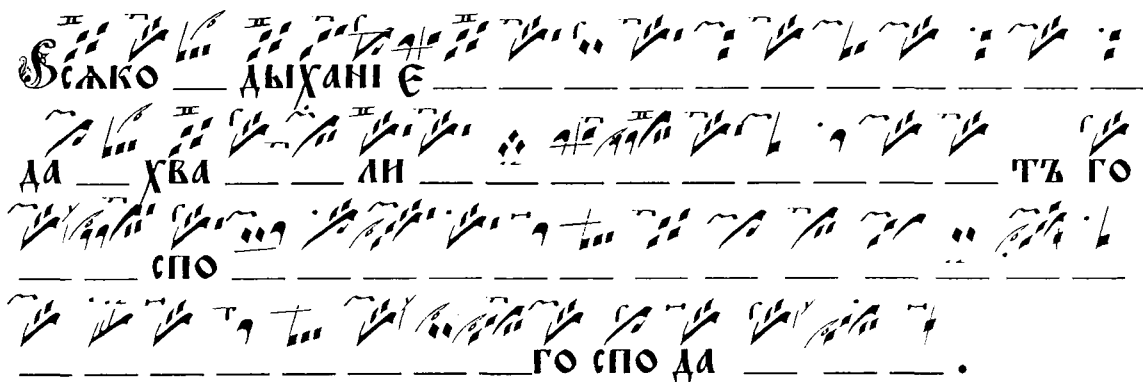 Всѧко __ дыханї є __ __ __ __ __ __ __ __ __ __ __
да __ хва __ __ __ ли __ __ __ __ __ __ __ __ __ тъ го
__ __ __ спо __ __ __ __ __ __ __ __ __ __ __ __ __ __
__ __ __ __ __ __ __ __ го спо да __ __ __ .